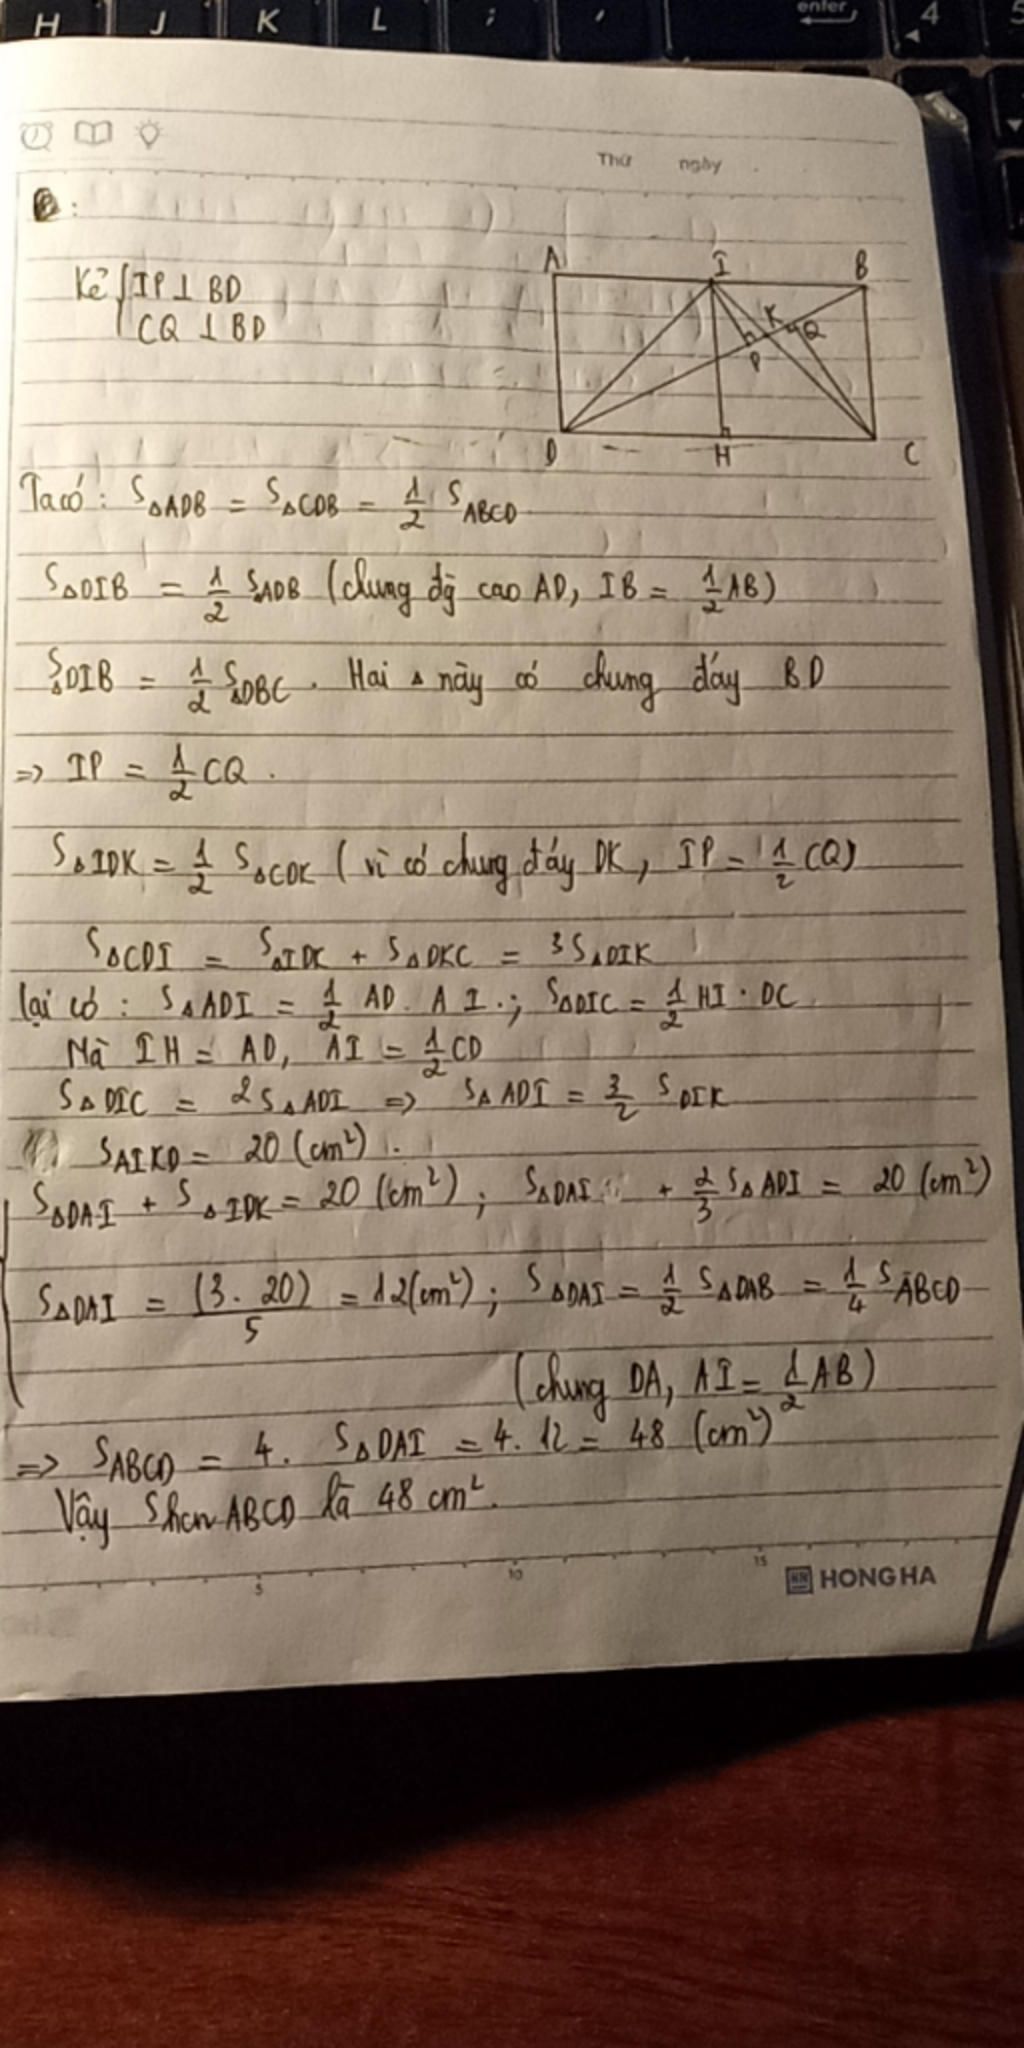 H J K L ; ' enter 4 5
Thứ ngày
Kẻ { IP ⊥ BD
CQ ⊥ BD
A I B
K Q
P
D H C
Ta có : S△ADB = S△CDB = 1/2 SABCD
S△DIB = 1/2 SADB (chung đg cao AD, IB = 1/2 AB)
S△DIB = 1/2 S△DBC . Hai △ này có chung đáy BD
=> IP = 1/2 CQ .
S△IDK = 1/2 S△CDK ( vì có chung đáy DK , IP = 1/2 CQ)
S△CDI = S△IDK + S△DKC = 3S△DIK
lại có : S△ADI = 1/2 AD . A I . ; S△DIC = 1/2 HI . DC
Mà IH = AD, AI = 1/2 CD
S△DIC = 2S△ADI => S△ADI = 3/2 SDIK
SAIKD = 20 (cm²) .
S△DAI + S△IDK = 20 (cm²) ; S△DAI + 2/3 S△ADI = 20 (cm²)
S△DAI = (3 . 20)/5 = 12(cm²) ; S△DAI = 1/2 S△DAB = 1/4 SABCD
(chung DA, AI = 1/2 AB)
=> SABCD = 4 . S△DAI = 4 . 12 = 48 (cm²)
Vậy Shcn ABCD là 48 cm².
5 10 15
HH HONG HA